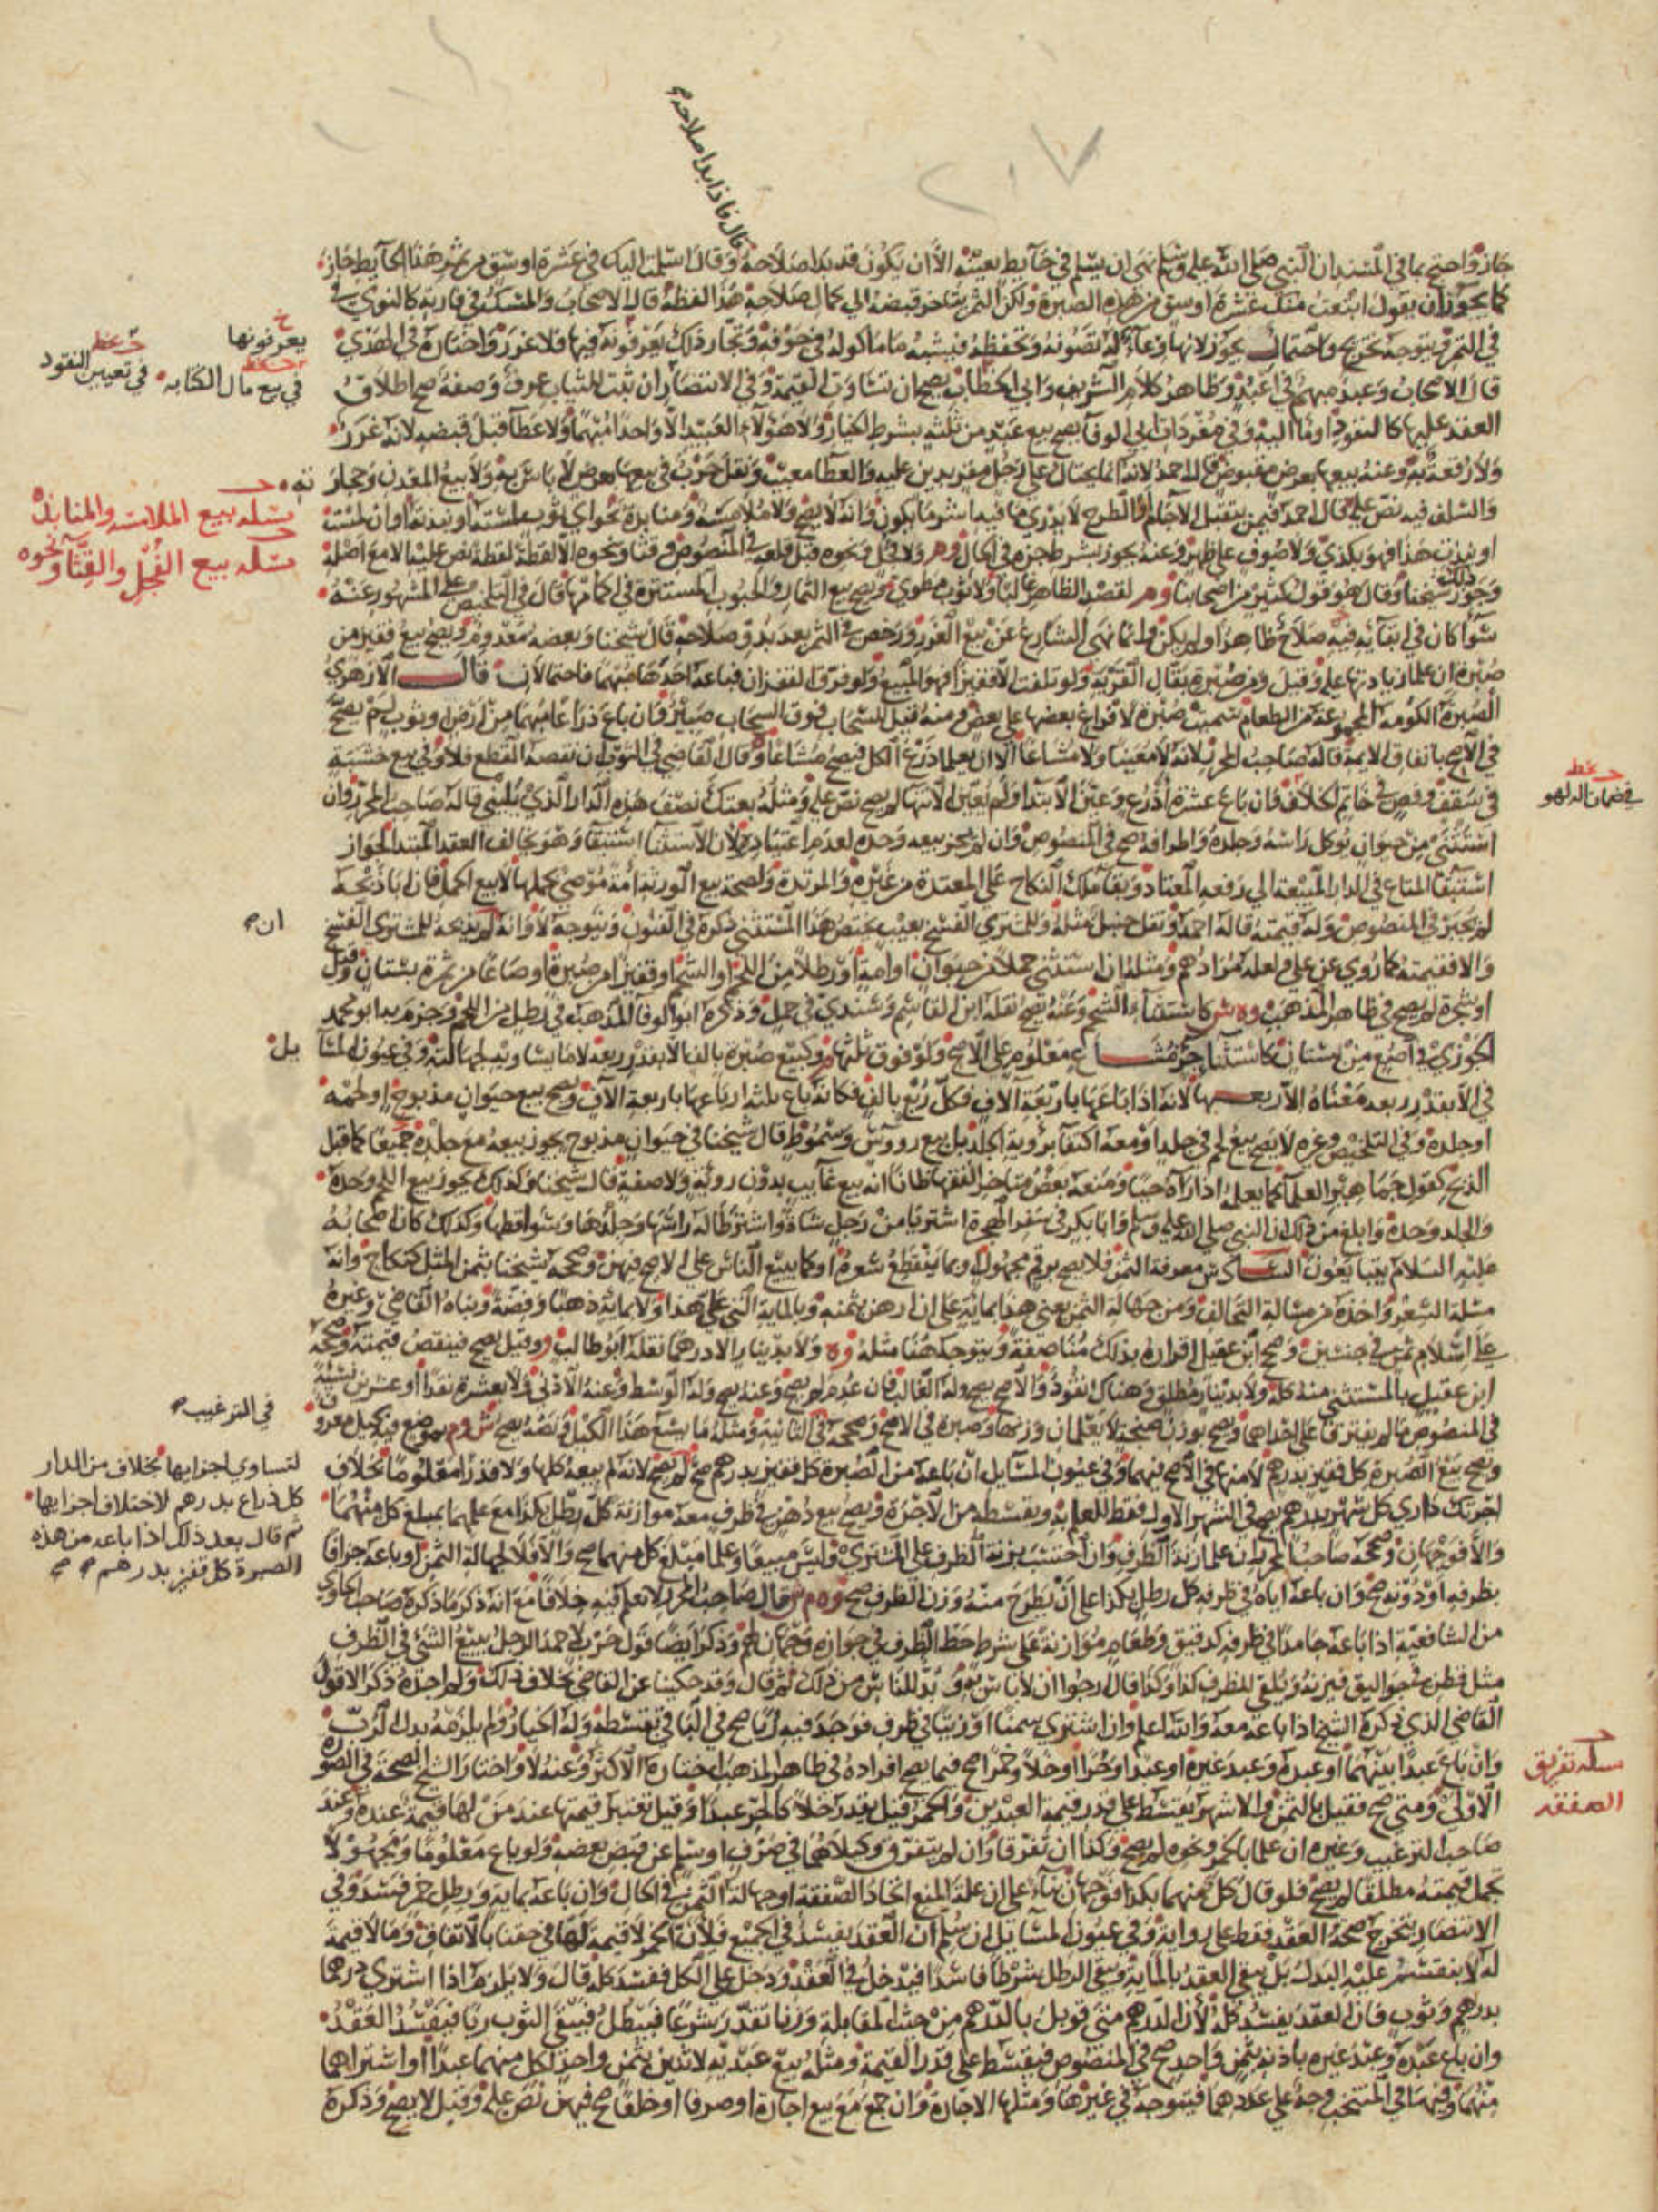 قال فاذا بدا صلاحه
٢٠٧
جاز واحتج بما في المسند ان النبي صلى الله عليه وسلم نهى ان يسلم في حايط بعينه الا ان يكون قد بدا صلاحه وقال اسلمت اليك في عشرة اوسق من تمر هذا الحايط جاز
كما يجوز ان يقول ابتعت منك عشرة اوسق من هذه الصبرة ولكن الثمر يتاخر قبضه الى كمال صلاحه هذا لفظه قال الاصحاب والمسك في فارته كالنوى في
في التمر ويتوجه تخريج واحتمال يجوز لانها وعاء له تصونه وتحفظه فيشبه ما ماكوله في جوفه وتجار ذلك يعرفونه فيها فلا غرر واختاره في الهدي
قال الاصحاب وعبد مبهم في اعبد وظاهر كلام الشريف وابي الخطاب يصح ان تساوت القيمة وفي الانتصار ان ثبت للثياب عرف وصفة صح اطلاق
العقد عليها كالنقود اوما اليه وفي مفردات ابي الوفا يصح بيع عبد من ثلثة بشرط الخيار ولا هؤلاء العبيد الا واحدا مبهما ولا عطا قبل قبضه لانه غرر
ولا رقعة به وعنه بيعها بعرض مقبوض قال احمد لانه انما يحتال على رجل مقر بدين عليه والعطا مغيب ونقل حرب في بيعها بعرض لا باس به ولا بيع المعدن وحجارته
والسلف فيه نص عليه قال احمد فيمن يتقبل الاجام او الطرح لا يدري ما فيه اشر ما يكون وانه لا يصح ولا ملامسة ومنابذة نحو اي ثوب لمسته او نبذته او ان لمست
او نبذت هذا فهو بكذي ولا صوف على ظهر وعنه يجوز بشرط جزه في الحال وم ولا فجل ونحوه قبل قلعه في المنصوص وقثا ونحوه الا لقطة لقطة نص عليه الا مع اصله
وجوز ذلك شيخنا وقال هو قول كثير من اصحابنا وم لقصد الظاهر غالبا ولا ثوب مطوي ويصح بيع الثمار والحبوب المستترة في اكمامها قال في التلخيص على المشهور عنه
سوا كان في ابقائه فيه صلاح ظاهر او لم يكن وانما نهى الشارع عن بيع الغرر ورخص في الثمر بعد بدو صلاحه قال شيخنا وبعضه معدوم ويصح بيع قفيز من
صبرة ان علما زيادتها عليه وقيل ومن صبرة بقال القرية ولو تلفت الا قفيزا فهو المبيع ولو فرق القفزان فباعه احدها مبهما فاحتمالان قال الازهري
الصبرة الكومة المجموعة من الطعام سميت صبرة لافراغ بعضها على بعض ومنه قيل للسحاب فوق السحاب صبير فان باع ذراعا مبهما من ارض او ثوب لم يصح
في الاصح باتفاق الايمة قاله صاحب المحرر لانه لا معينا ولا مشاعا الا ان يعلما ذرع الكل فيصح مشاعا وقال القاضي في الثوب ان نقصه القطع فلا وفي بيع خشبة
في سقف وفص في خاتم الخلاف فان باع عشرة اذرع وعين الابتدا ولم يعين الانتها لم يصح نص عليه ومثله بعتك نصف هذه الدار الذي يليني قاله صاحب المحرر وان
استثنى من حيوان يوكل راسه وجلده واطرافه صح في المنصوص وان لم يجز بيعه وحده لعدم اعتياده لان الاستثنا استبقا وهو يخالف العقد المبتدا لجواز
استبقا المتاع في الدار المبيعة الى رفعه المعتاد وبقا ملك النكاح على المعتدة من غيره والمرتدة ولصحة بيع الورثة امة موصى بحملها لا بيع الحمل فان ابا ذبحه
لم يجبر في المنصوص وله قيمته قاله احمد ونقل حنبل مثله وللمشتري الفسخ بعيب يختص هذا المستثنى ذكره في الفنون ويتوجه لا وانه ان لم يذبحه للمشتري الفسخ
والا فقيمته كما روي عن علي ولعله مرادهم ومثله ان استثنى حملا من حيوان او امة او رطلا من اللحم او الشحم او قفيزا من صبرة او صاعا من ثمرة بستان وقيل
او شجرة لم يصح في ظاهر المذهب وه ش كاستثناء الشحم وعنه يصح نقله ابن القاسم وسندي في حمل وذكره ابو الوفا المذهب في رطل من اللحم وجزم به ابو محمد
الجوزي في اصع من بستان كاستثنا جزء مشاع معلوم على الاصح ولو فوق ثلثها وكبيع صبرة بالف الا بقدر ربعه لا ما يساويه لجهالته وفي عيون المسايل
في الا بقدر ربعه معناه الا ربعها لانه اذا باعها باربعة الاف فكل ربع بالف فكانه باع ثلثة ارباعها باربعة الاف ويصح بيع حيوان مذبوح او لحمه
او جلده وفي التلخيص وغيره لا يصح بيع لحم في جلد او معه اكتفا برؤية الجلد بل بيع رووس وسموط قال شيخنا في حيوان مذبوح يجوز بيعه مع جلده جميعا كما قبل
الذبح كقول جماهير العلما كما يعلمه اذا رآه حيا ومنعه بعض متاخري الفقها ظانا انه بيع غايب بدون رؤية ولا صفة قال شيخنا وكذلك يجوز بيع اللحم وحده
والجلد وحده وابلغ من ذلك ان النبي صلى الله عليه وسلم وابا بكر في سفر الهجرة اشتريا من رجل شاة واشترطا له راسها وجلدها وسواقطها وكذلك كان اصحابه
عليه السلام يتبايعون السادس معرفة الثمن فلا يصح برقم مجهول وبما ينقطع سعره او كما يبيع الناس على الاصح فيهن وصححه شيخنا بثمن المثل كنكاح وانه
مسلة السعر واخذه من مسالة التحالف ومن جهالة الثمن يعني هذا بماية على ان ارهن بثمنه وبالماية التي على هذا ولا بماية ذهبا وفضة وبناه القاضي وغيره
على اسلام ثمن في جنسين وصحح ابن عقيل اقراره بذلك مناصفة ويتوجه هنا مثله وه ولا بدينار الا درهما نقله ابو طالب وقيل يصح فينقص قيمته وصححه
ابن عقيل بالمستثنى منه كله ولا بدينار مطلق وهناك نقود والاصح يصح وله الغالب فان عدم لم يصح وعنه يصح وله الوسط وعنه الادنى ولا بعشرة نقدا او عشرين نسيئة
في المنصوص ما لم يفترقا على احداهما ويصح بوزن صنجة لا يعلمان وزنها وصبرة في الاصح وصححه في الثانية ومثله ما يسع هذا الكيل ونصه يصح ش وم بموضع فيه كيل معروف
ويصح بيع الصبرة كل قفيز بدرهم لا منها في الاصح فيهما وفي عيون المسايل ان باعه من الصبرة كل قفيز بدرهم صح لم يصح لانه لم يبعه كلها ولا قدرا معلوما بخلاف
اجرتك داري كل شهر بدرهم يصح في الشهر الاول فقط للعلم به وبقسطه من الاجرة ويصح بيع دهن في ظرف معه موازنة كل رطل بكذا مع علمهما بمبلغ كل منهما
والا فوجهان وصححه صاحب المحرر ان علما زنة الظرف وان احتسب بزنة الظرف على المشتري وليس مبيعا وعلما مبلغ كل منهما صح والا فلا لجهالة الثمن او باعه جزافا
بظرفه او دونه صح وان باعه اياه في ظرفه كل رطل بكذا على ان يطرح منه وزن الظرف صح وه م ش قال صاحب المحرر لا نعلم فيه خلافا مع انه ذكر ما ذكره صاحب الحاوي
من الشافعية اذا باعه جامدا في ظرفه كدقيق وطعام موازنة على شرط حط الظرف في جوازه وجهان لهم وذكر ايضا قول حرب لاحمد الرجل يبيع الشئ في الظرف
مثل قطن في جواليق فيزنه ويلقي للظرف كذا وكذا قال ارجوا ان لا باس به ولا بد للناس من ذلك ثم قال وقد حكينا عن القاضي خلاف ذلك ولم اجده ذكر الا قول
القاضي الذي ذكره الشيخ اذا باعه معه والله اعلم وان اشترى سمنا او زيتا في ظرف فوجد فيه ربا صح في الباقي بقسطه وله الخيار ولم يلزمه بدل الرب
وان باع عبدا بينهما او عبده وعبد غيره او عبدا وحرا او خلا وخمرا صح فيما يصح افراده في ظاهر المذهب اختاره الاكثر وعنه لا واختار الشيخ الصحة في الصورة
الاولى ومتى صح فقيل بالثمن والاشهر يقسط على قدر قيمة العبدين والخمر قيل يقدر خلا كالحر عبدا وقيل تعتبر قيمتها عند من لها قيمة عنده وعند
صاحب الترغيب وغيره ان علما بالخمر ونحوه لم يصح وكذا ان تفرقا وان لم يتفرق وكيلاهما في صرف او سلم عن قبض بعضه ولو باع معلوما ومجهولا
تجهل قيمته مطلقا لم يصح فلو قال كل منهما بكذا فوجهان بناء على ان علة المنع اتحاد الصفقة او جهالة الثمن في الحال وان باعه بماية ورطل خمر فسد وفي
الانتصار يتخرج صحة العقد فقط على رواية وفي عيون المسايل ان سلم ان العقد يفسد في الجميع فلان الخمر لا قيمة لها في حقنا بالاتفاق وما لا قيمة
له لا ينقسم عليه البدل بل يبقى العقد بالماية ويبقى الرطل شرطا فاسدا فيدخل في العقد ودخل على الكل ففسد كله قال ولا يلزم اذا اشترى درهما
بدرهم وثوب فان العقد يفسد كله لان الدرهم متى قوبل بالدرهم من حيث المقابلة وزنا تقدر شرعا فيبطل فيبقى الثوب ربا فيفسد العقد
وان باع عبده وعبد غيره باذنه بثمن واحد صح في المنصوص فيقسط على قدر القيمة ومثله بيع عبديه لاثنين بثمن واحد لكل منهما عبدا او اشتراهما
منهما وفيها في المنتخب وجه على عددهما فيتوجه في غيرها ومثلها الاجارة وان جمع مع بيع اجارة او صرفا او خلعا صح فيهن نص عليه وقيل لا يصح وذكره
خ
يعرفونها
في بيع مال الكتابه
في تعيين النقود
مسئله بيع الملامسه والمنابذة
مسئله بيع الفجل والقثا ونحوه
ان
يل
في الترغيب
لتساوي اجزايها بخلاف من الدار
كل ذراع بدرهم لاختلاف اجزايها
ثم قال بعد ذلك اذا باعه من هذه
الصبرة كل قفيز بدرهم صح
في ضمان
مسئله تفريق
الصفقه